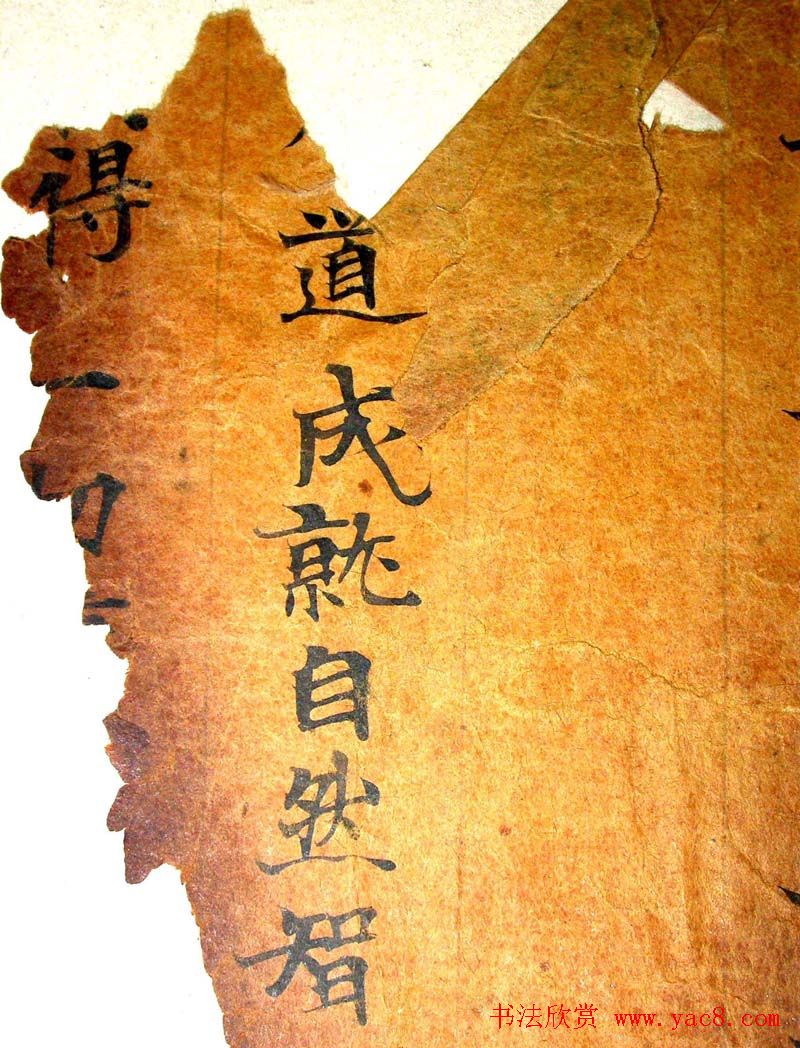 道成就自然智
得一切
书法欣赏 www.yac8.com